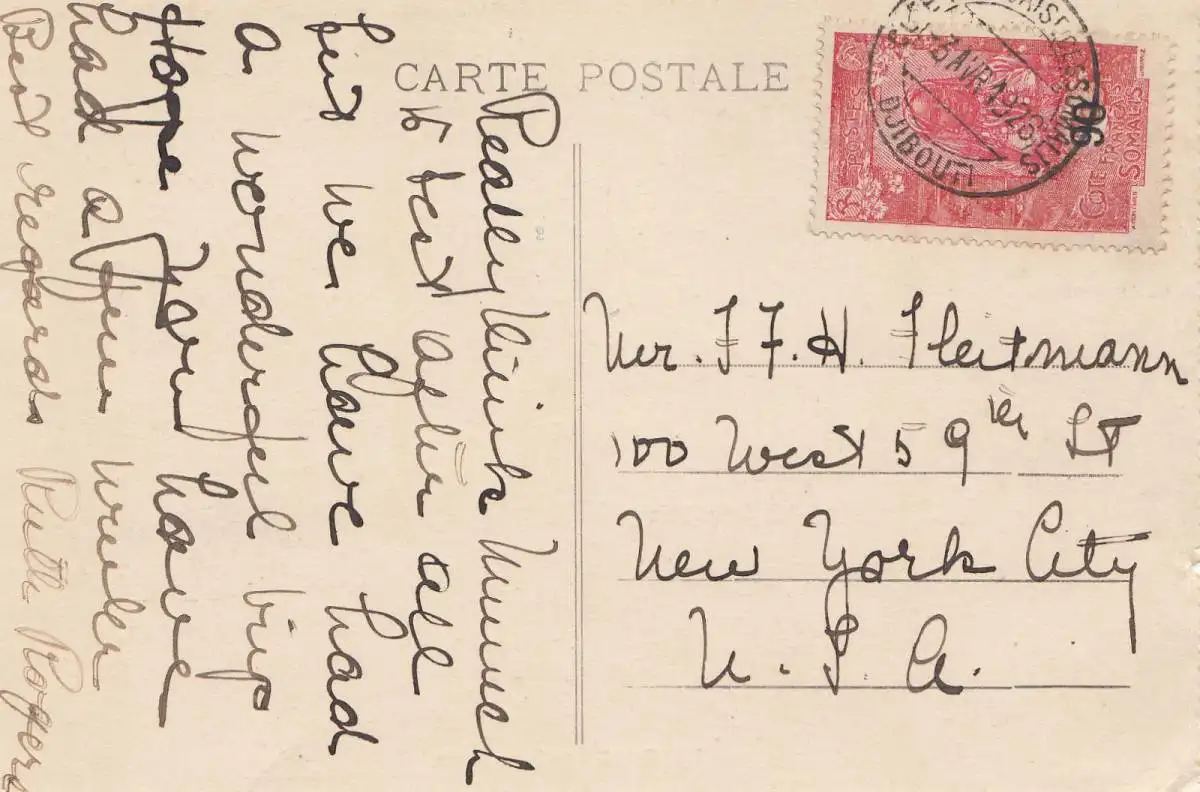 CARTE POSTALE
Really think Munich
is best after all
but we have had
a wonderful trip
Hope You have
had a fine winter
Best regards Ruth Rogers
POSTES
90
COTE FRSE DES
SOMALIS
3 AVR 192
DJIBOUTI
Mr. F. H. Fleitmann
100 West 59th St
New York City
U. S. A.